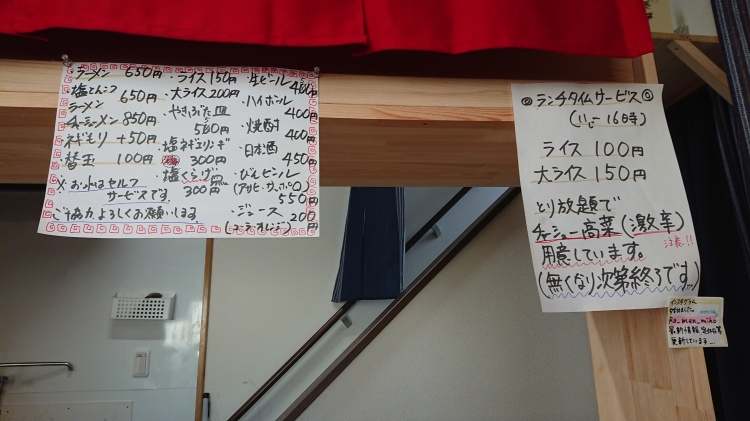 ラーメン 650円
塩とんこつ
ラーメン 650円
チャーシューメン 850円
ネギモリ +50円
替玉 100円
※お水はセルフ
サービスです
ご協力よろしくお願いします
・ライス150円
・大ライス200円
・やきぶた皿
580円
・塩ネギメリンギ
300円
・塩くらげ
300円
・生ビール
480円
・ハイボール
400円
・焼酎
400円
・日本酒
450円
・びんビール
(アサヒ・サッポロ)
550円
・ジュース 200
円
◎ランチタイムサービス◎
(11:00~16時)
ライス 100円
大ライス 150円
とり放題で
チャーシュー高菜(激辛)
注意!!
用意しています。
(無くなり次第終了です)
インスタグラム
始めました
ra_men_miko
最新情報 定休日等
更新しています...